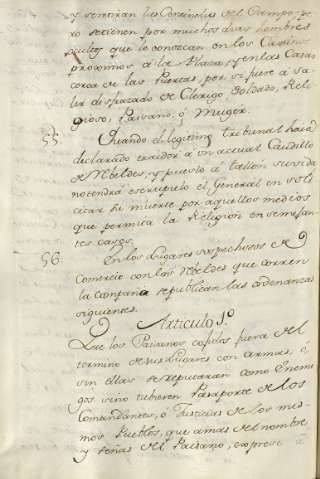 y vendran las Centinelas del Campo, pe
ro se tienen por muchos dias hombres
ocultos que lo conoscan en los Caminos
proximos à la Plaza, y en las Casas
cerca de las Puertas, por si fuese à sa
lir disfrazado de Clerigo, Soldado, Reli
gioso, Paisano, ò Muger.
55. Quando el legitimo Tribunal haia
declarado traidor à un actual Caudillo
de Rebeldes, y puesto à tallon su vida
no tendrà escrupulo el General en soli
citar su muerte por aquellos medios
que permita la Religion en semejan
tes casos.
56. En los Lugares sospechosos de
Comercio con los Rebeldes que corren
la campaña se publican las ordenanzas
siguientes.
Articulo 1º
Que los Paisanos cojidos fuera del
termino de sus Lugares con armas, ò
sin ellas se reputaran como Enemi
gos sino tubieren Pasaporte de los
Comandantes, ò Justicias de los mis
mos Pueblos, que a mas del nombre,
y señas del Paisano, exprese à